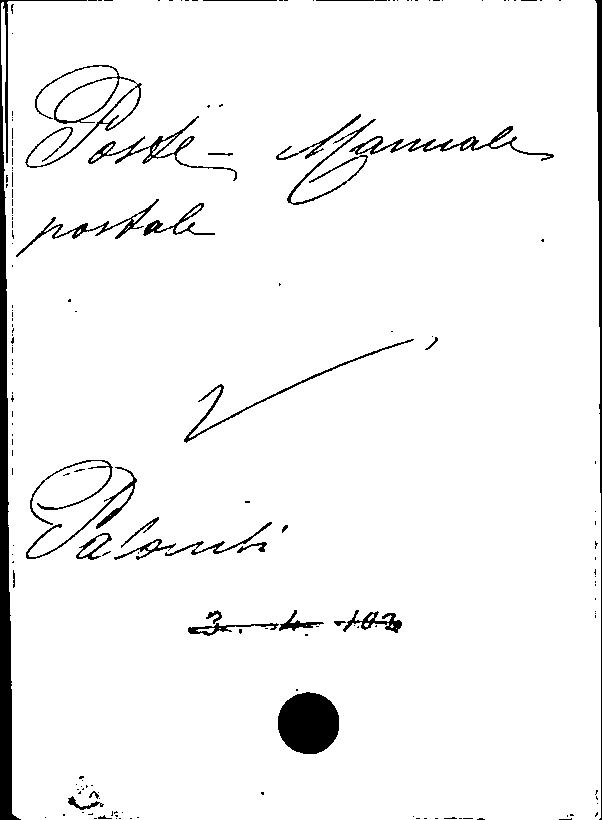 Poste - Manuale
postale
Palombi
3. 4. 103